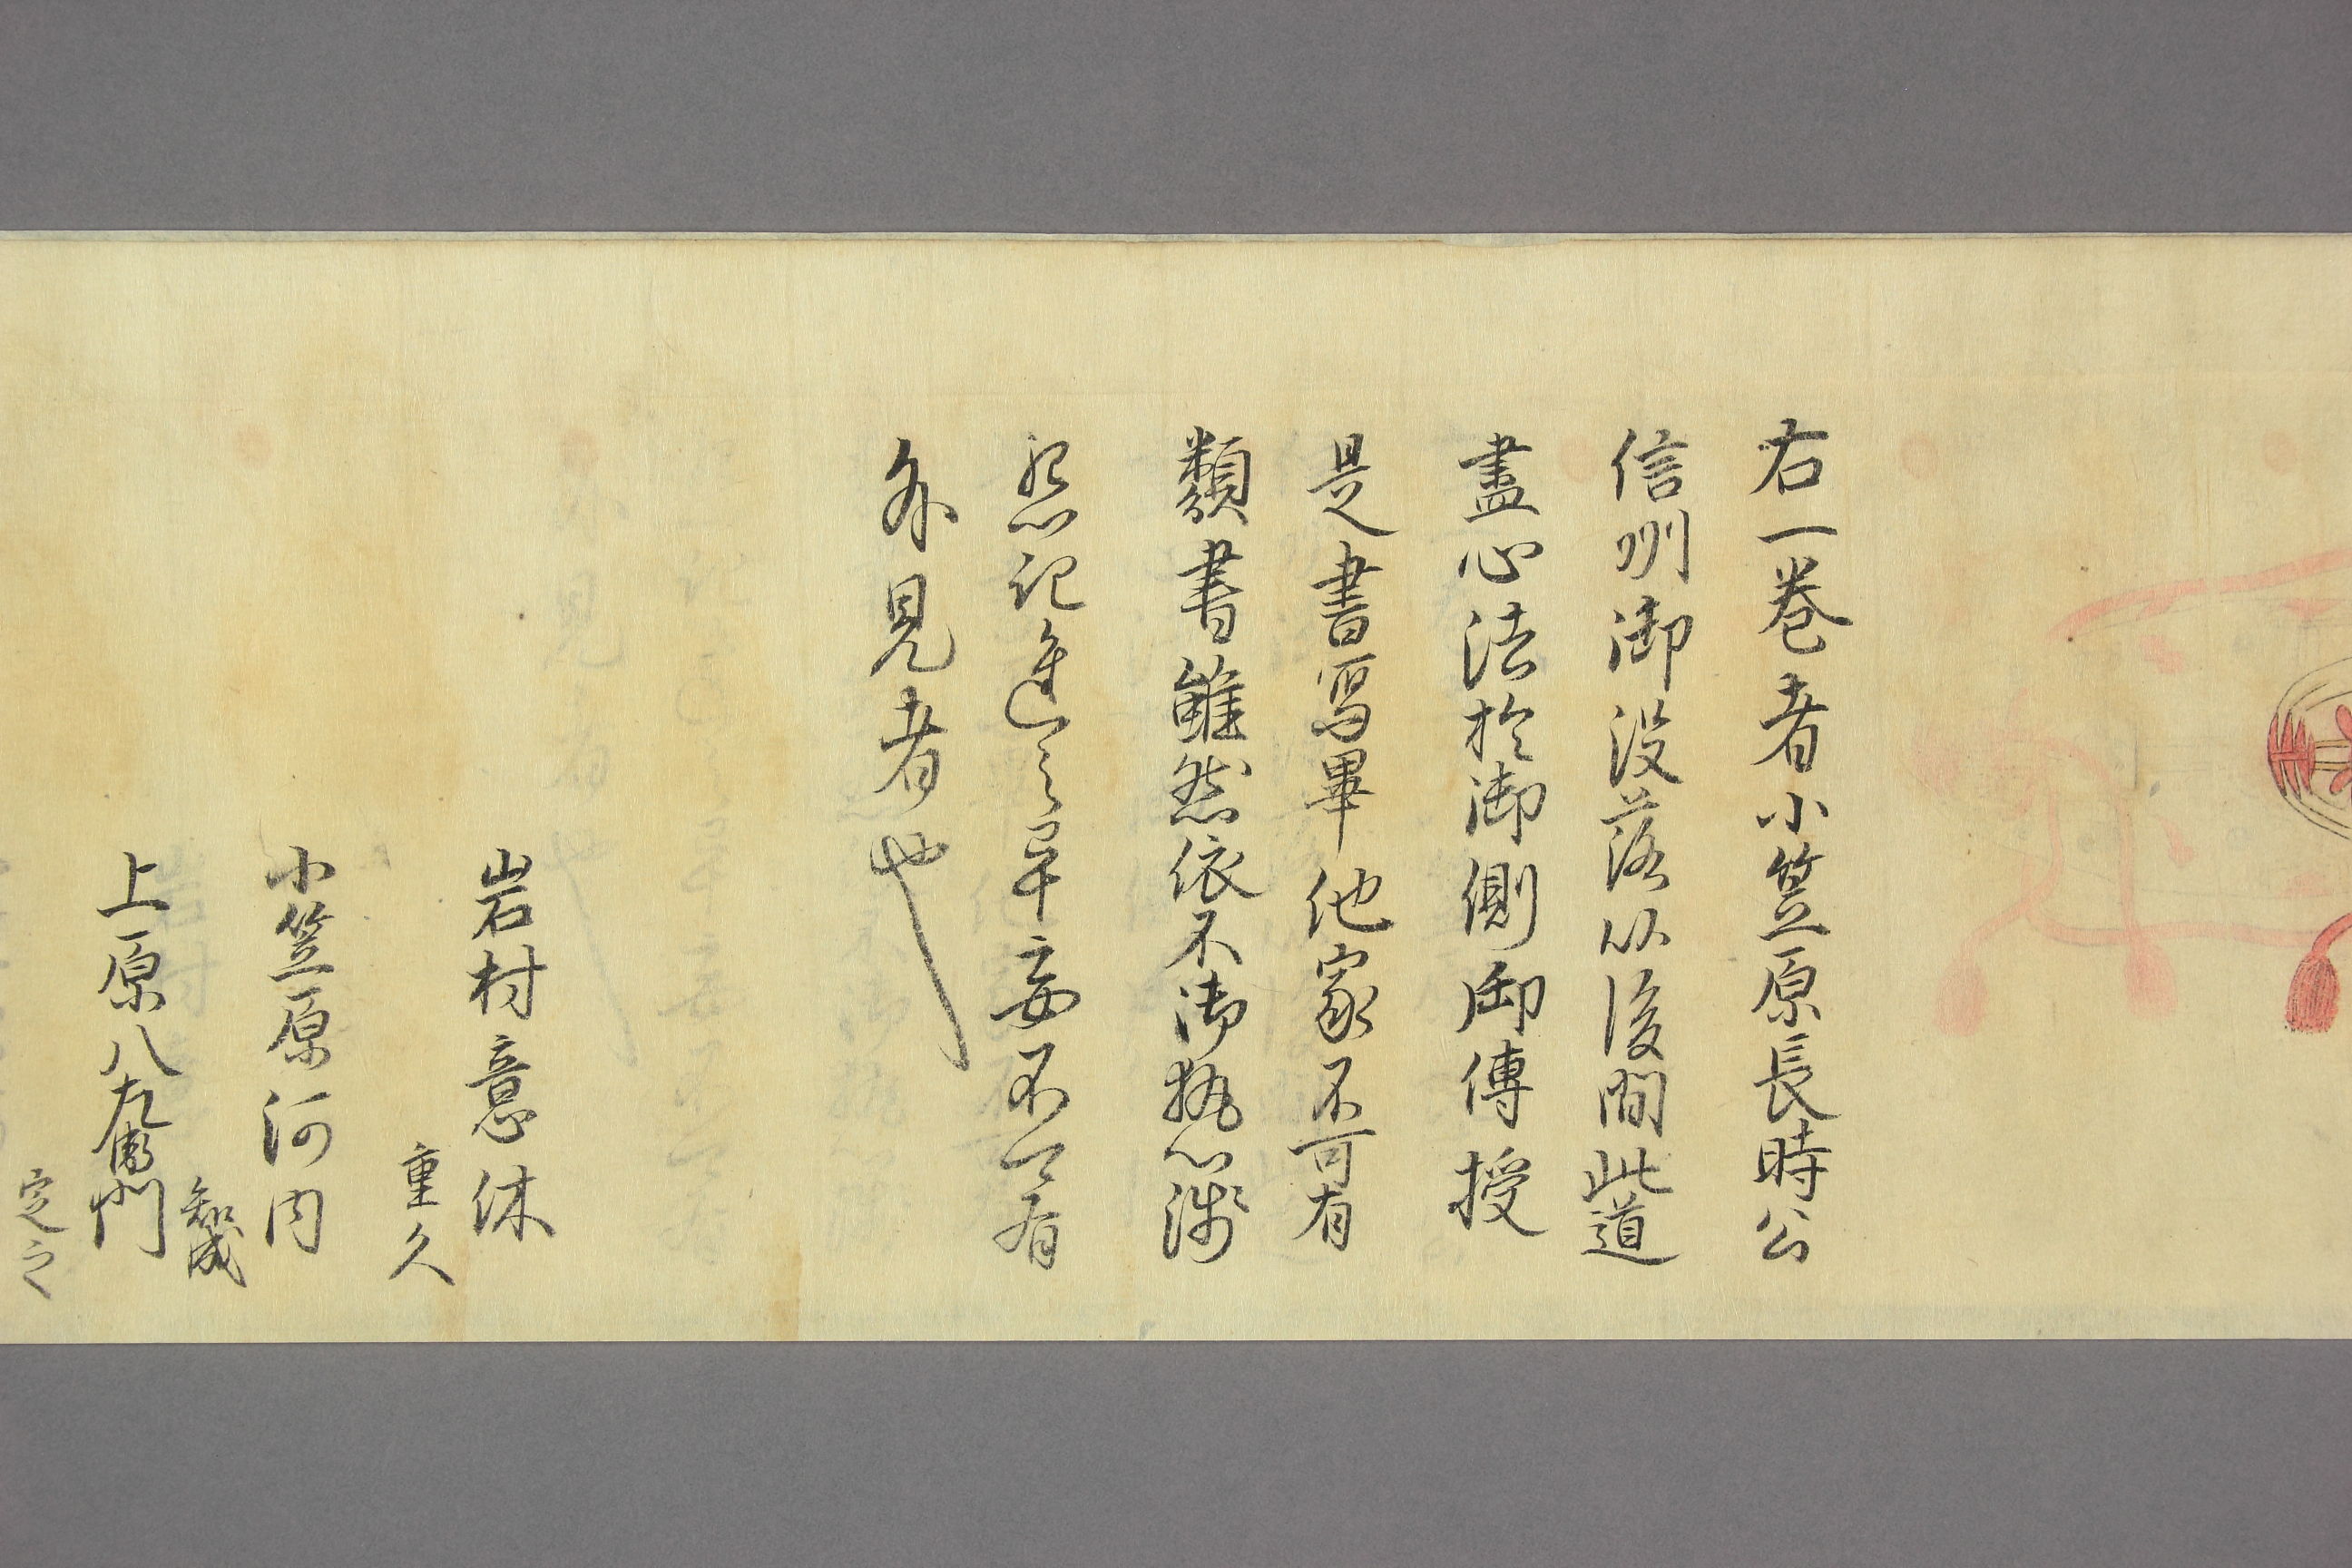 右一巻者小笠原長時公
信州御没落以後間此道
盡心法於御側御傳授
是書寫畢他家不可有
類書雖然依不浅執心
記進之畢妄不可有
外見者也
岩村意休
重久
小笠原河内
上原八左衛門
定之